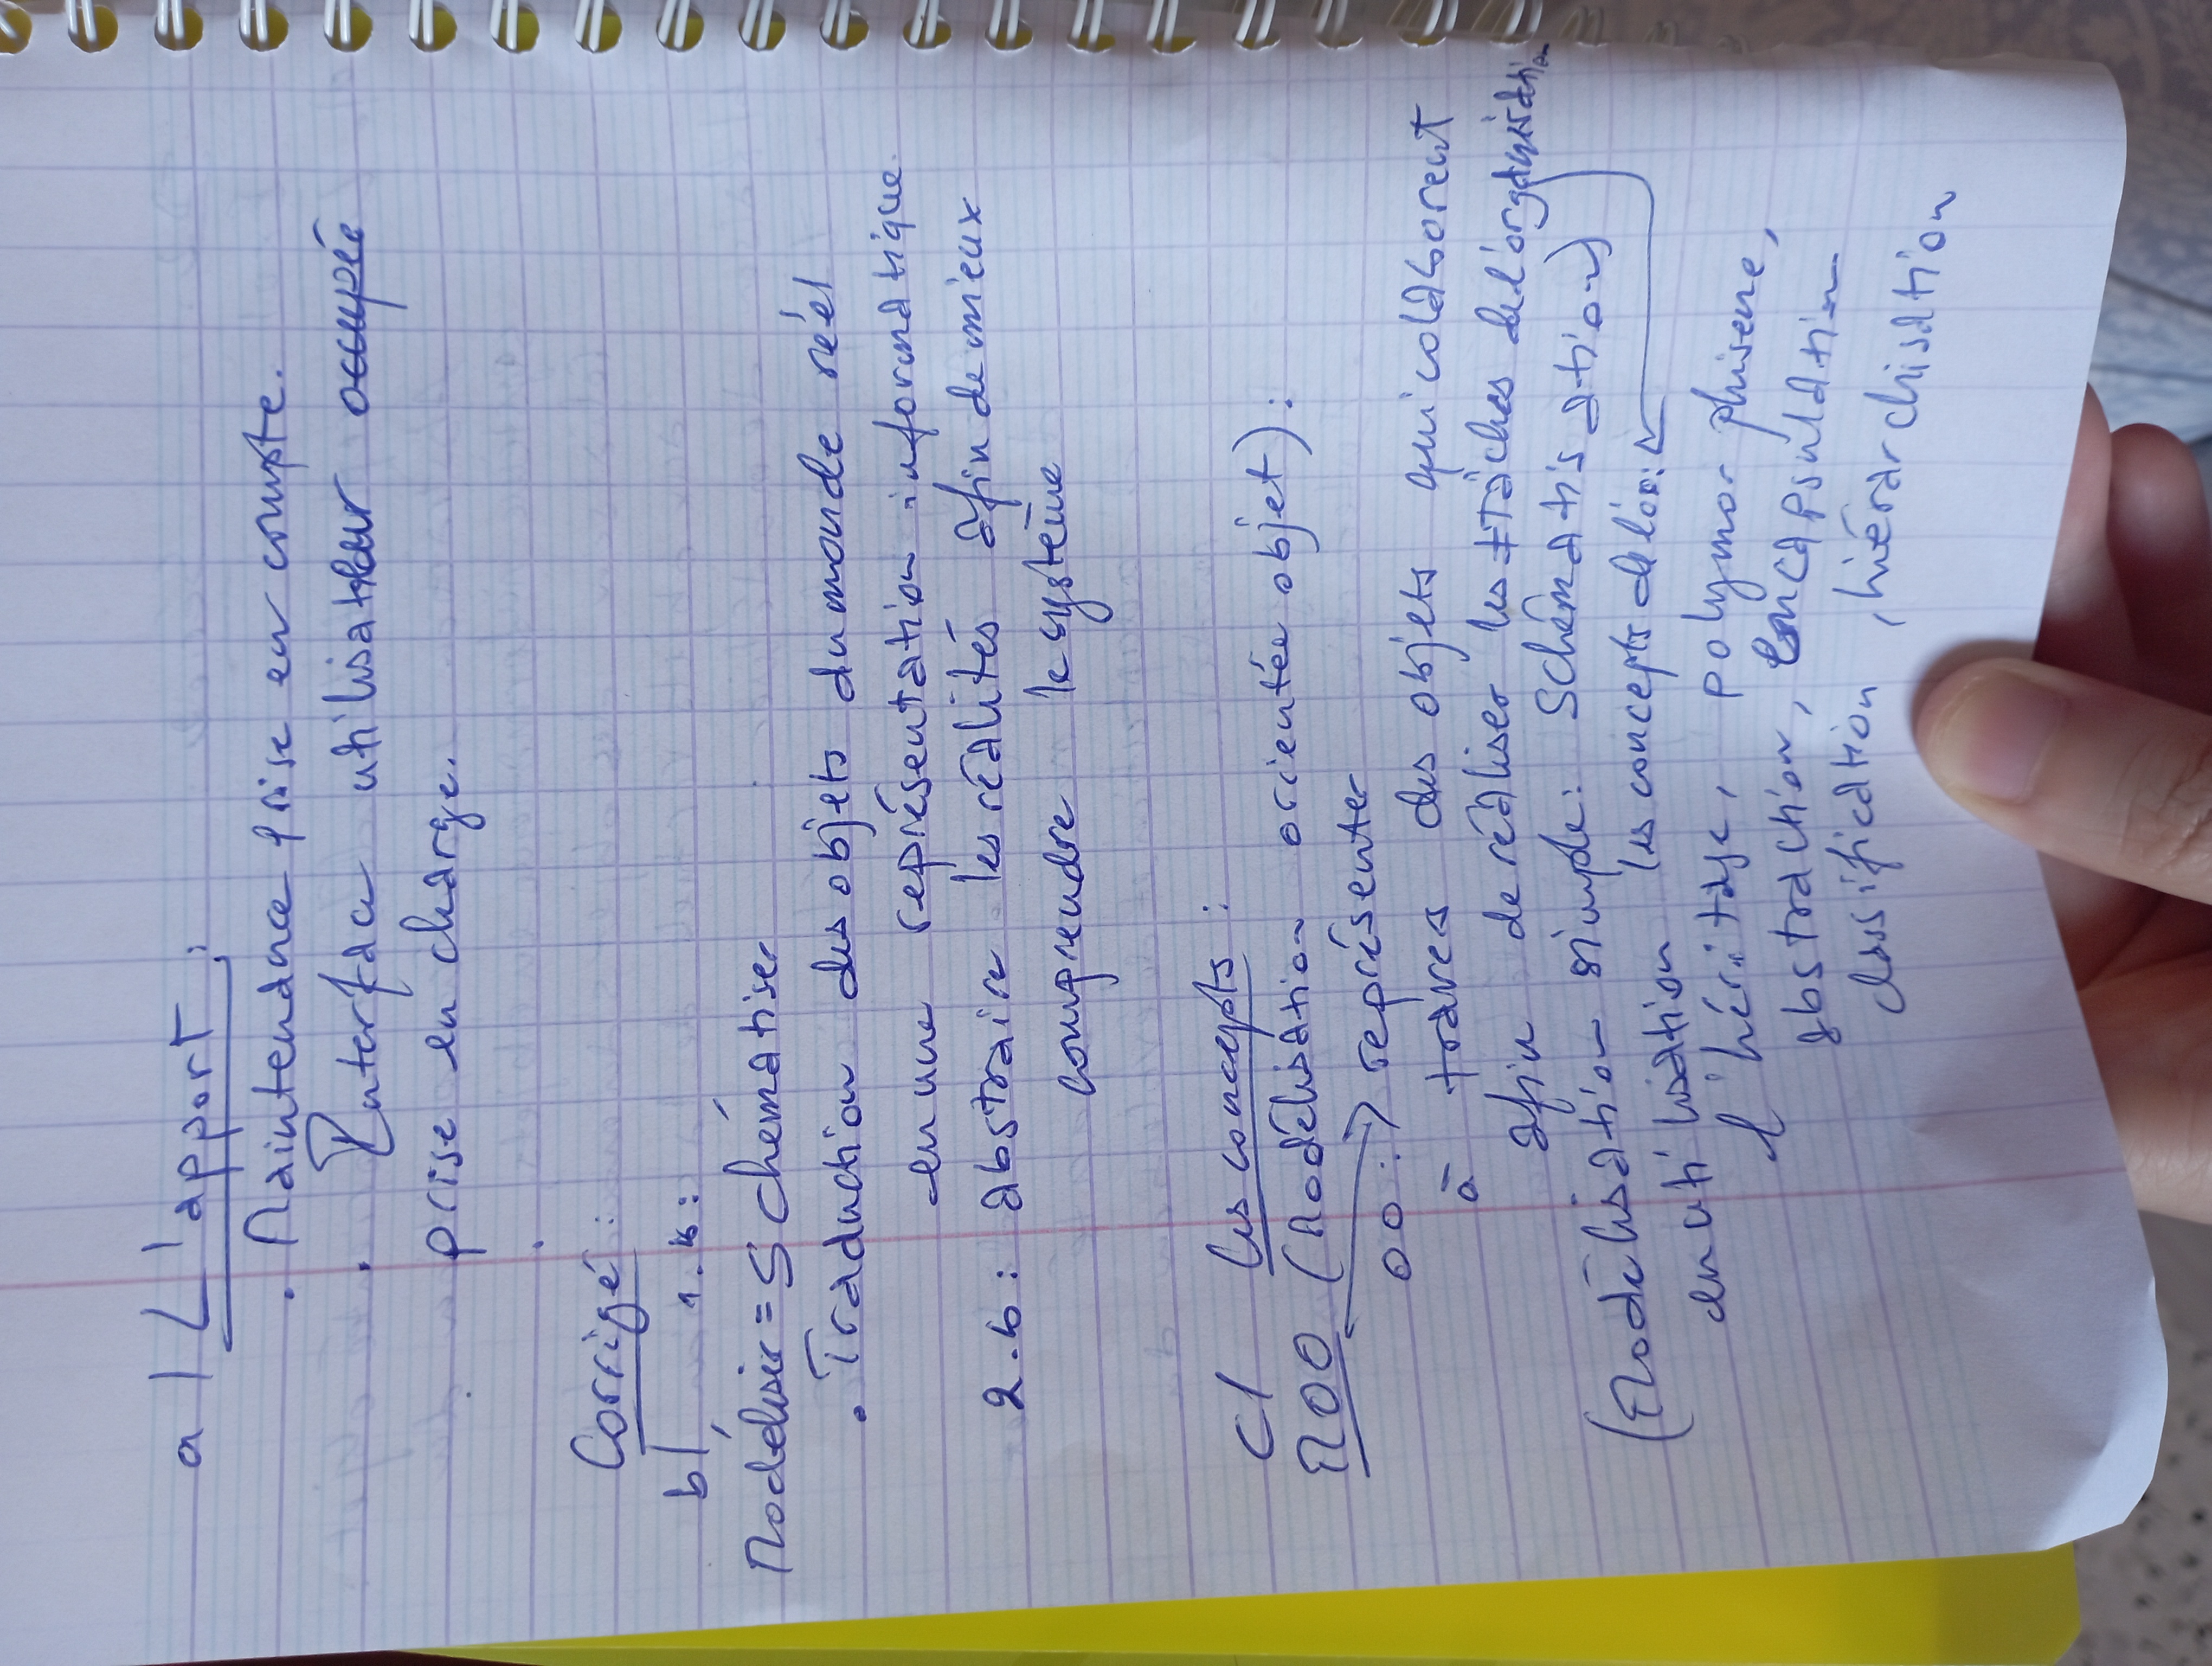 a / L'apport :
. Maintenance prise en compte.
. Interface utilisateur occupée
prise en charge.
.
Corrigé :
b/ 1.b :
Modéliser = Schématiser
. Traduction des objets du monde réel
en une représentation informatique.
2.b : abstraire les réalités afin de mieux
comprendre le système
C/ les concepts :
MOO (Modélisation orientée objet) :
OO : → représenter
à travers des objets qui colaborent
afin de réaliser les ≠ tâches de l'organisation
(Modélisation simple : Schématisation)
en utilisation les concepts de l'oo :
l'héritage, polymorphisme,
abstraction, encapsulation
classification, hiérarchisation